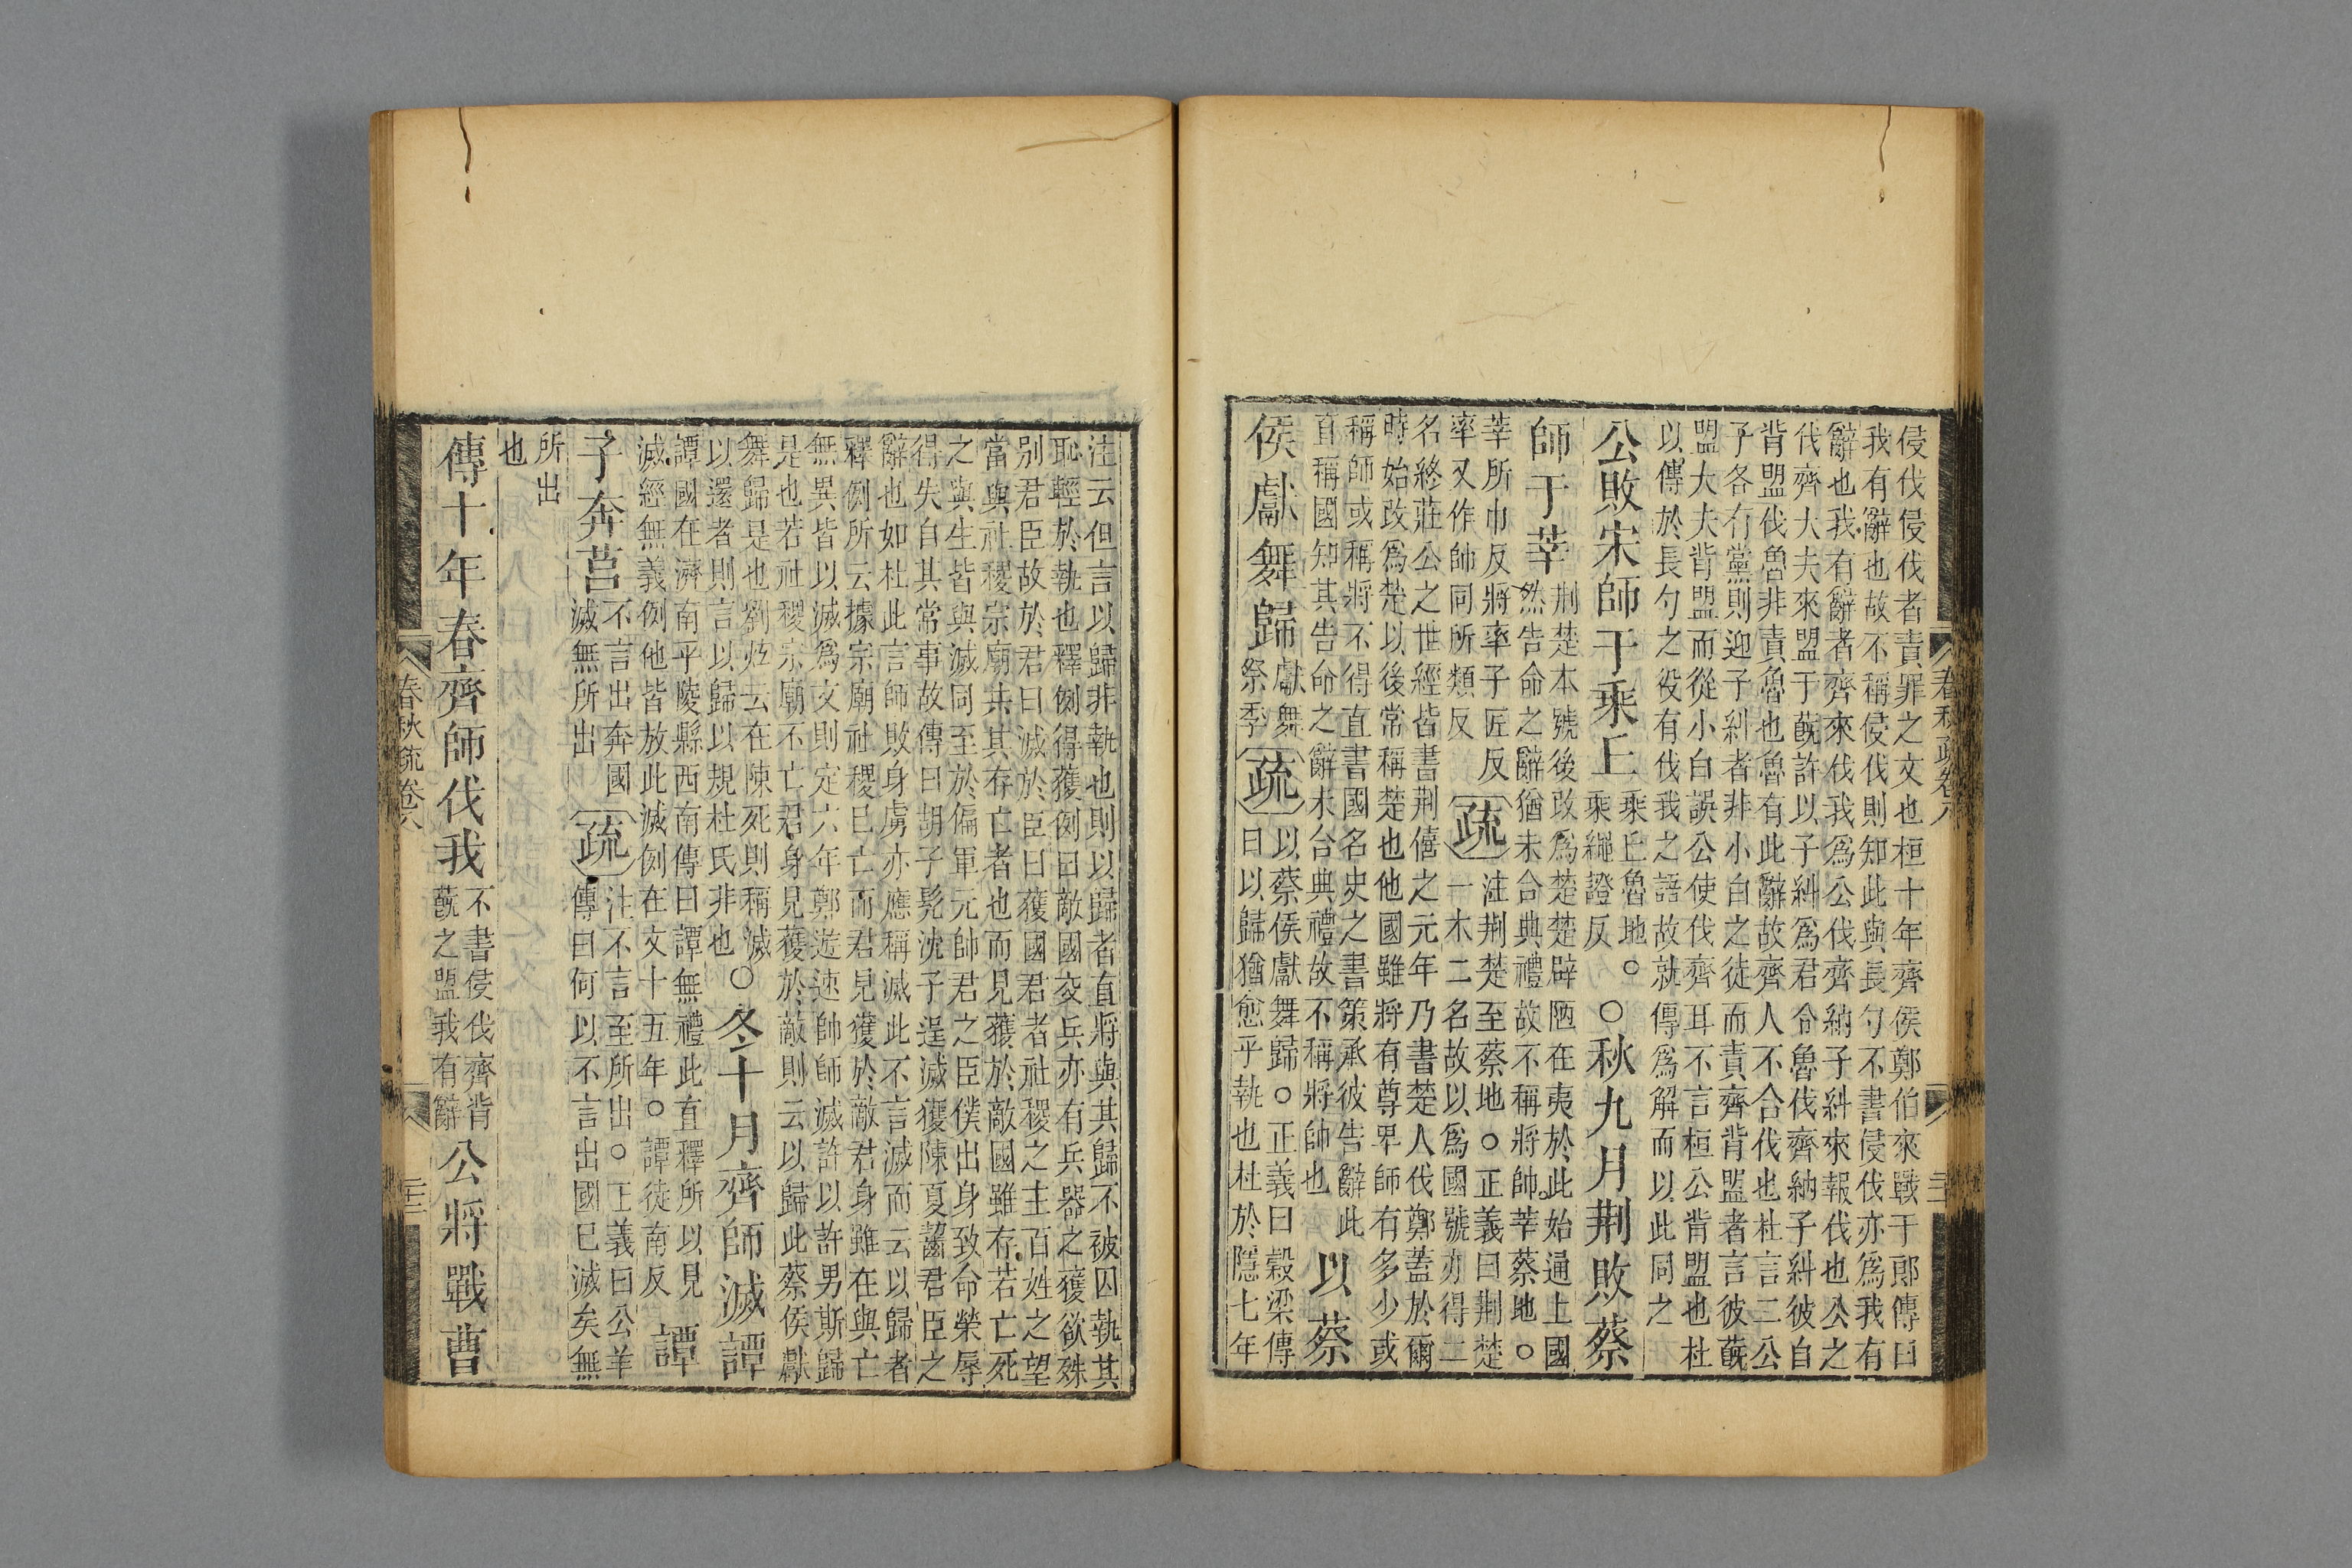 侵伐侵伐者責罪之文也桓十年齊侯鄭伯來戰于郎傳曰
我有辭也故不稱侵伐則知此與長勺不書侵伐亦爲我有
辭也我有辭者齊來伐我爲公伐齊納子糾來報伐也公之
伐齊大夫來盟于蔇許以子糾爲君令魯伐齊納子糾彼自
背盟伐魯非責魯也魯有此辭故齊人不合伐也杜言二公
子各有黨則迎子糾者非小白之徒而責齊背盟者言彼蔇
盟大夫背盟而從小白誤公使伐齊耳不言桓公背盟也杜
以傳於長勺之役有伐我之語故就傳爲解而以此同之
公敗宋師于乘丘
乘丘魯地○
乘繩證反
○秋九月荆敗蔡
師于莘
荆楚本號後改爲楚楚辟陋在夷於此始通上國
然告命之辭猶未合典禮故不稱將帥莘蔡地○
莘所巾反將率子匠反
率又作帥同所類反
疏
注荆楚至蔡地○正義曰荆楚
一木二名故以爲國號亦得二
名終莊公之世經皆書荆僖之元年乃書楚人伐鄭蓋於爾
時始改爲楚以後常稱楚也他國雖將有尊卑師有多少或
稱師或稱將不得直書國名史之書策承彼告辭此
直稱國知其告命之辭未合典禮故不稱將帥也
以蔡
侯獻舞歸
獻舞
祭季
疏
以蔡侯獻舞歸○正義曰穀梁傳
曰以歸猶愈乎執也杜於隱七年
注云但言以歸非執也則以歸者直將與其歸不被囚執其
恥輕於執也釋例得獲例曰敵國交兵亦有兵器之獲欲殊
別君臣故於君曰滅於臣曰獲國君者社稷之主百姓之望
當與社稷宗廟共其存亡者也而見獲於敵國雖存若亡死
之與生皆與滅同至於偏軍元帥君之臣僕出身致命榮辱
得失自其常事故傳曰胡子髡沈子逞滅獲陳夏齧君臣之
辭也如杜此言師敗身虜亦應稱滅此不言滅而云以歸者
釋例所云據宗廟社稷已亡而君見獲於敵君身雖在與亡
無異皆以滅爲文則定六年鄭遊速帥師滅許以許男斯歸
是也若社稷宗廟不亡君身見獲於敵則云以歸此蔡侯獻
舞歸是也劉炫云在陳死則稱滅
以還者則言以歸以規杜氏非也
○冬十月齊師滅譚
譚國在濟南平陵縣西南傳曰譚無禮此直釋所以見
滅經無義例他皆放此滅例在文十五年○譚徒南反
譚
子奔莒
不言出奔國
滅無所出
疏
注不言至所出○正義曰公羊
傳曰何以不言出國已滅矣無
所出
也
傳十年春齊師伐我
不書侵伐齊背
蔇之盟我有辭
公將戰曹
春秋疏卷八
春秋疏卷八